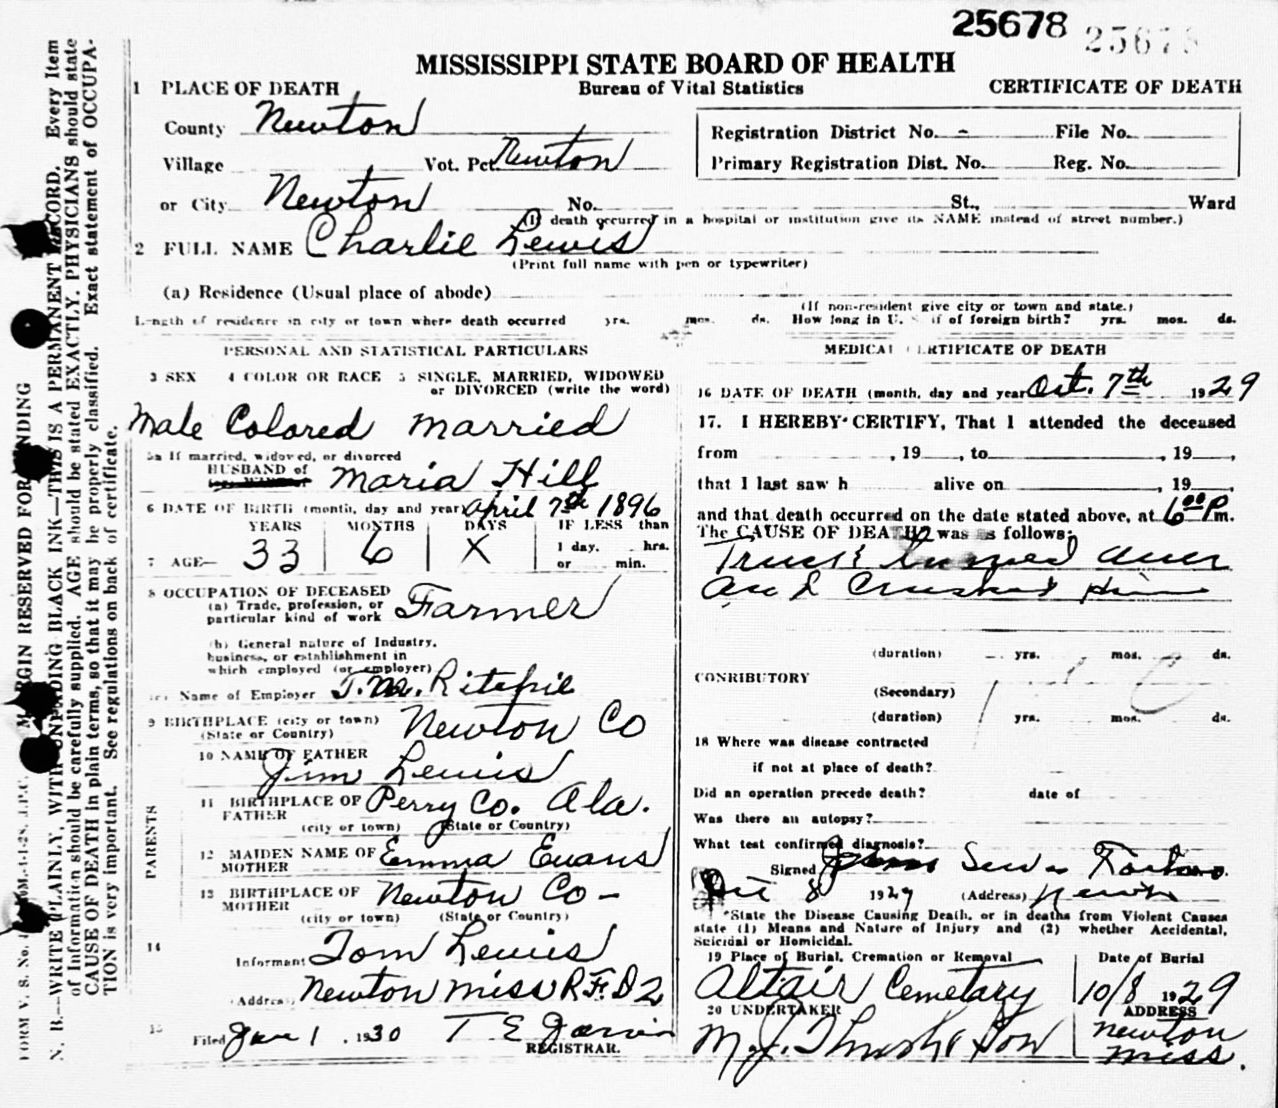 25678 25678
MISSISSIPPI STATE BOARD OF HEALTH
Bureau of Vital Statistics
CERTIFICATE OF DEATH
1 PLACE OF DEATH
County Newton
Village Vot. Pct. Newton
or City Newton No. St., Ward
(If death occurred in a hospital or institution give its NAME instead of street number.)
Registration District No. - File No.
Primary Registration Dist. No. Reg. No.
2 FULL NAME Charlie Lewis
(Print full name with pen or typewriter)
(a) Residence (Usual place of abode)
(If non-resident give city or town and state.)
Length of residence in city or town where death occurred yrs. mos. ds. How long in U. S. if of foreign birth? yrs. mos. ds.
PERSONAL AND STATISTICAL PARTICULARS
3 SEX 4 COLOR OR RACE 5 SINGLE, MARRIED, WIDOWED
or DIVORCED (write the word)
Male Colored Married
5a If married, widowed, or divorced
HUSBAND of Maria Hill
6 DATE OF BIRTH (month, day and year) April 7th 1896
YEARS MONTHS DAYS IF LESS than
7 AGE— 33 6 X 1 day, hrs.
or min.
8 OCCUPATION OF DECEASED
(a) Trade, profession, or
particular kind of work Farmer
(b) General nature of Industry,
business, or establishment in
which employed (or employer)
(c) Name of Employer T.M. Ritchie
9 BIRTHPLACE (city or town) Newton Co
(State or Country)
PARENTS
10 NAME OF FATHER
Jim Lewis
11 BIRTHPLACE OF FATHER Perry Co. Ala.
(city or town) (State or Country)
12 MAIDEN NAME OF MOTHER Emma Evans
13 BIRTHPLACE OF MOTHER Newton Co -
(city or town) (State or Country)
14
Informant Tom Lewis
Address Newton Miss R.F.D 2
15
Filed Jan 1, 1930 T E
REGISTRAR.
MEDICAL CERTIFICATE OF DEATH
16 DATE OF DEATH (month, day and year) Oct. 7th 1929
17. I HEREBY CERTIFY, That I attended the deceased
from , 19 , to , 19 ,
that I last saw h alive on , 19 ,
and that death occurred on the date stated above, at 6 00 P m.
The CAUSE OF DEATH was as follows:
Truck turned over
and Crushed Him
(duration) yrs. mos. ds.
CONRIBUTORY
(Secondary)
(duration) yrs. mos. ds.
18 Where was disease contracted
if not at place of death?
Did an operation precede death? date of
Was there an autopsy?
What test confirmed diagnosis?
Signed
8 1929 (Address) Newton
*State the Disease Causing Death, or in deaths from Violent Causes
state (1) Means and Nature of Injury and (2) whether Accidental,
Suicidal or Homicidal.
19 Place of Burial, Cremation or Removal Date of Burial
Altair Cemetary 10/8 1929
20 UNDERTAKER ADDRESS
M.J. Thrash & Son Newton
Miss.
MARGIN RESERVED FOR BINDING
N. B.—WRITE PLAINLY, WITH UNFADING BLACK INK—THIS IS A PERMANENT RECORD. Every Item
of Information should be carefully supplied. AGE should be stated EXACTLY. PHYSICIANS should state
CAUSE OF DEATH in plain terms, so that it may be properly classified. Exact statement of OCCUPA-
TION is very important. See regulations on back of certificate.
FORM V. S. No.